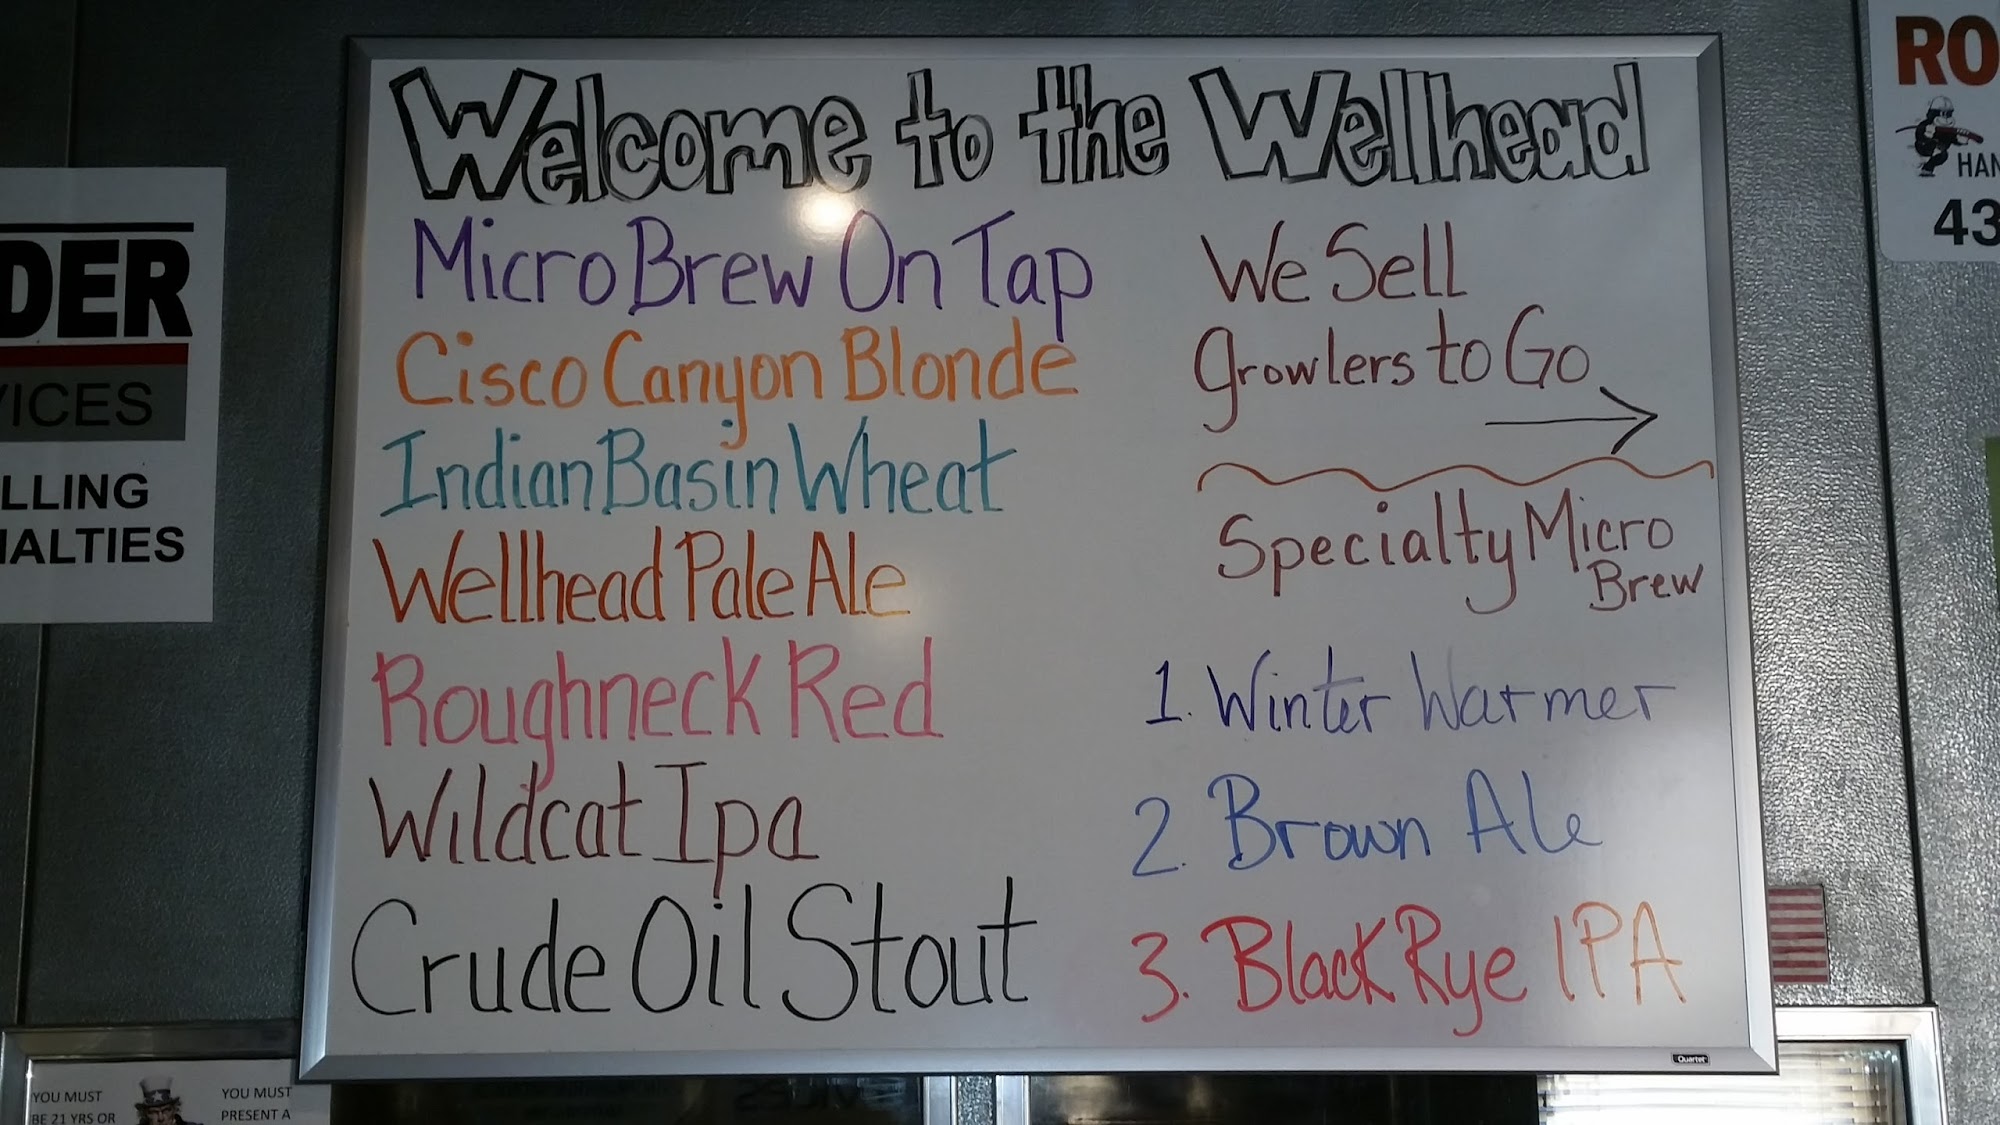 Welcome to the Wellhead
Micro Brew On Tap
Cisco Canyon Blonde
Indian Basin Wheat
Wellhead Pale Ale
Roughneck Red
Wildcat Ipa
Crude Oil Stout
We Sell
Growlers to Go
Specialty Micro
Brew
1. Winter Warmer
2. Brown Ale
3. Black Rye IPA
Quartet
DER
VICES
LLING
IALTIES
RO
HAN
43
YOU MUST
BE 21 YRS OR
YOU MUST
PRESENT A